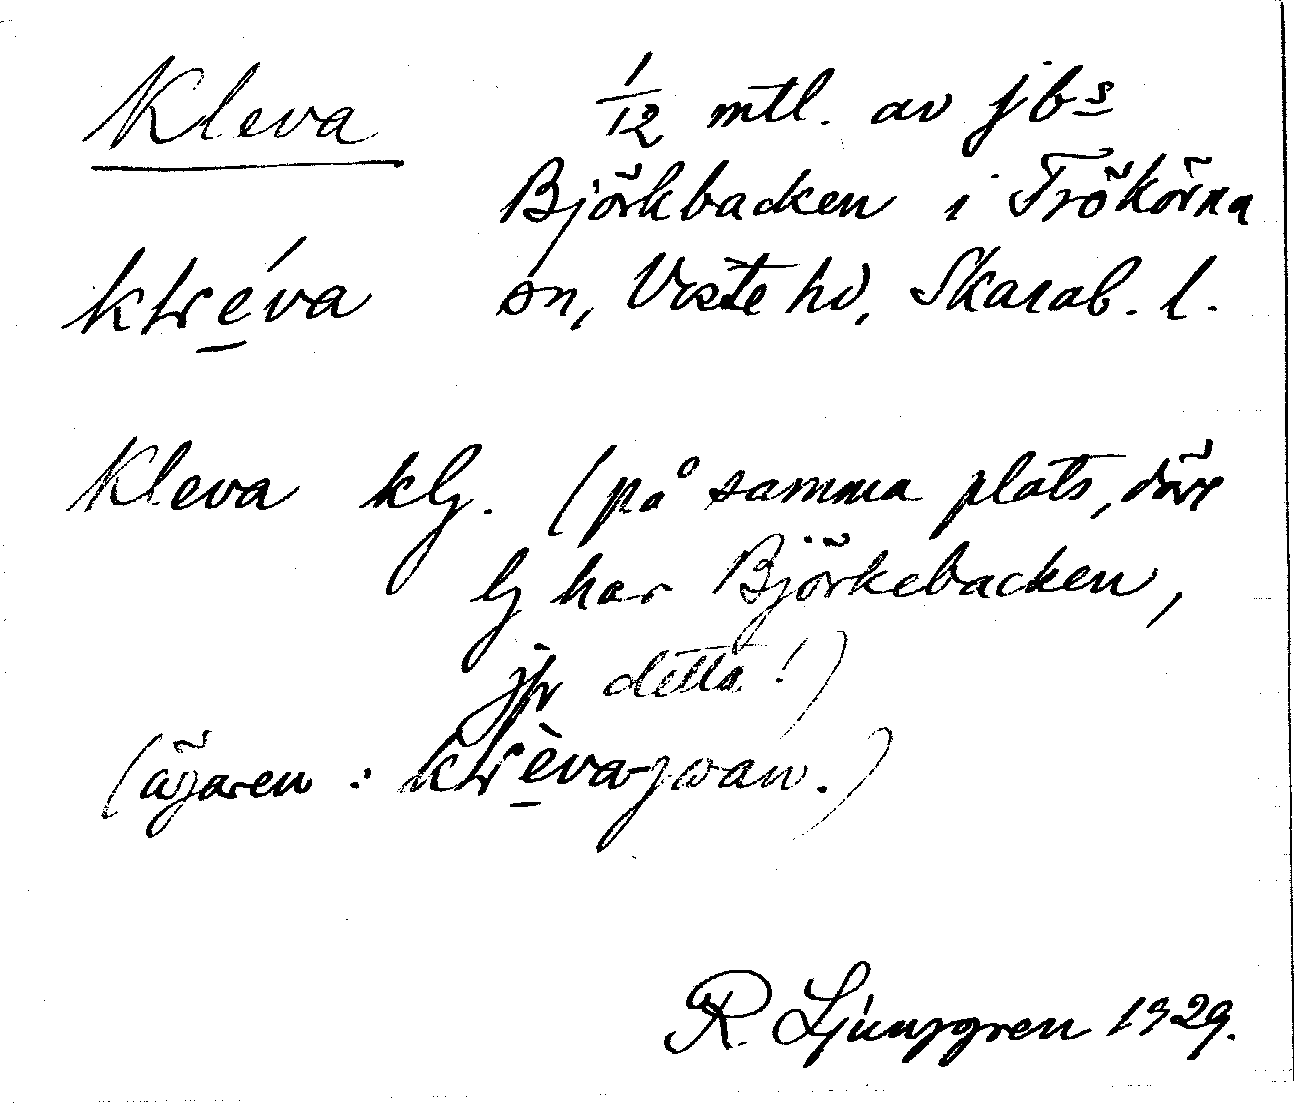 Kleva 1/12 mtl. av jbs
Björkbacken i Trökörna
klréva sn, Viste hd, Skarab. l.
Kleva klg. (på samma plats, där
lg har Björkebacken,
jfr detta!)
(ägaren: klrèva-jwan.)
R. Ljunggren 1929.